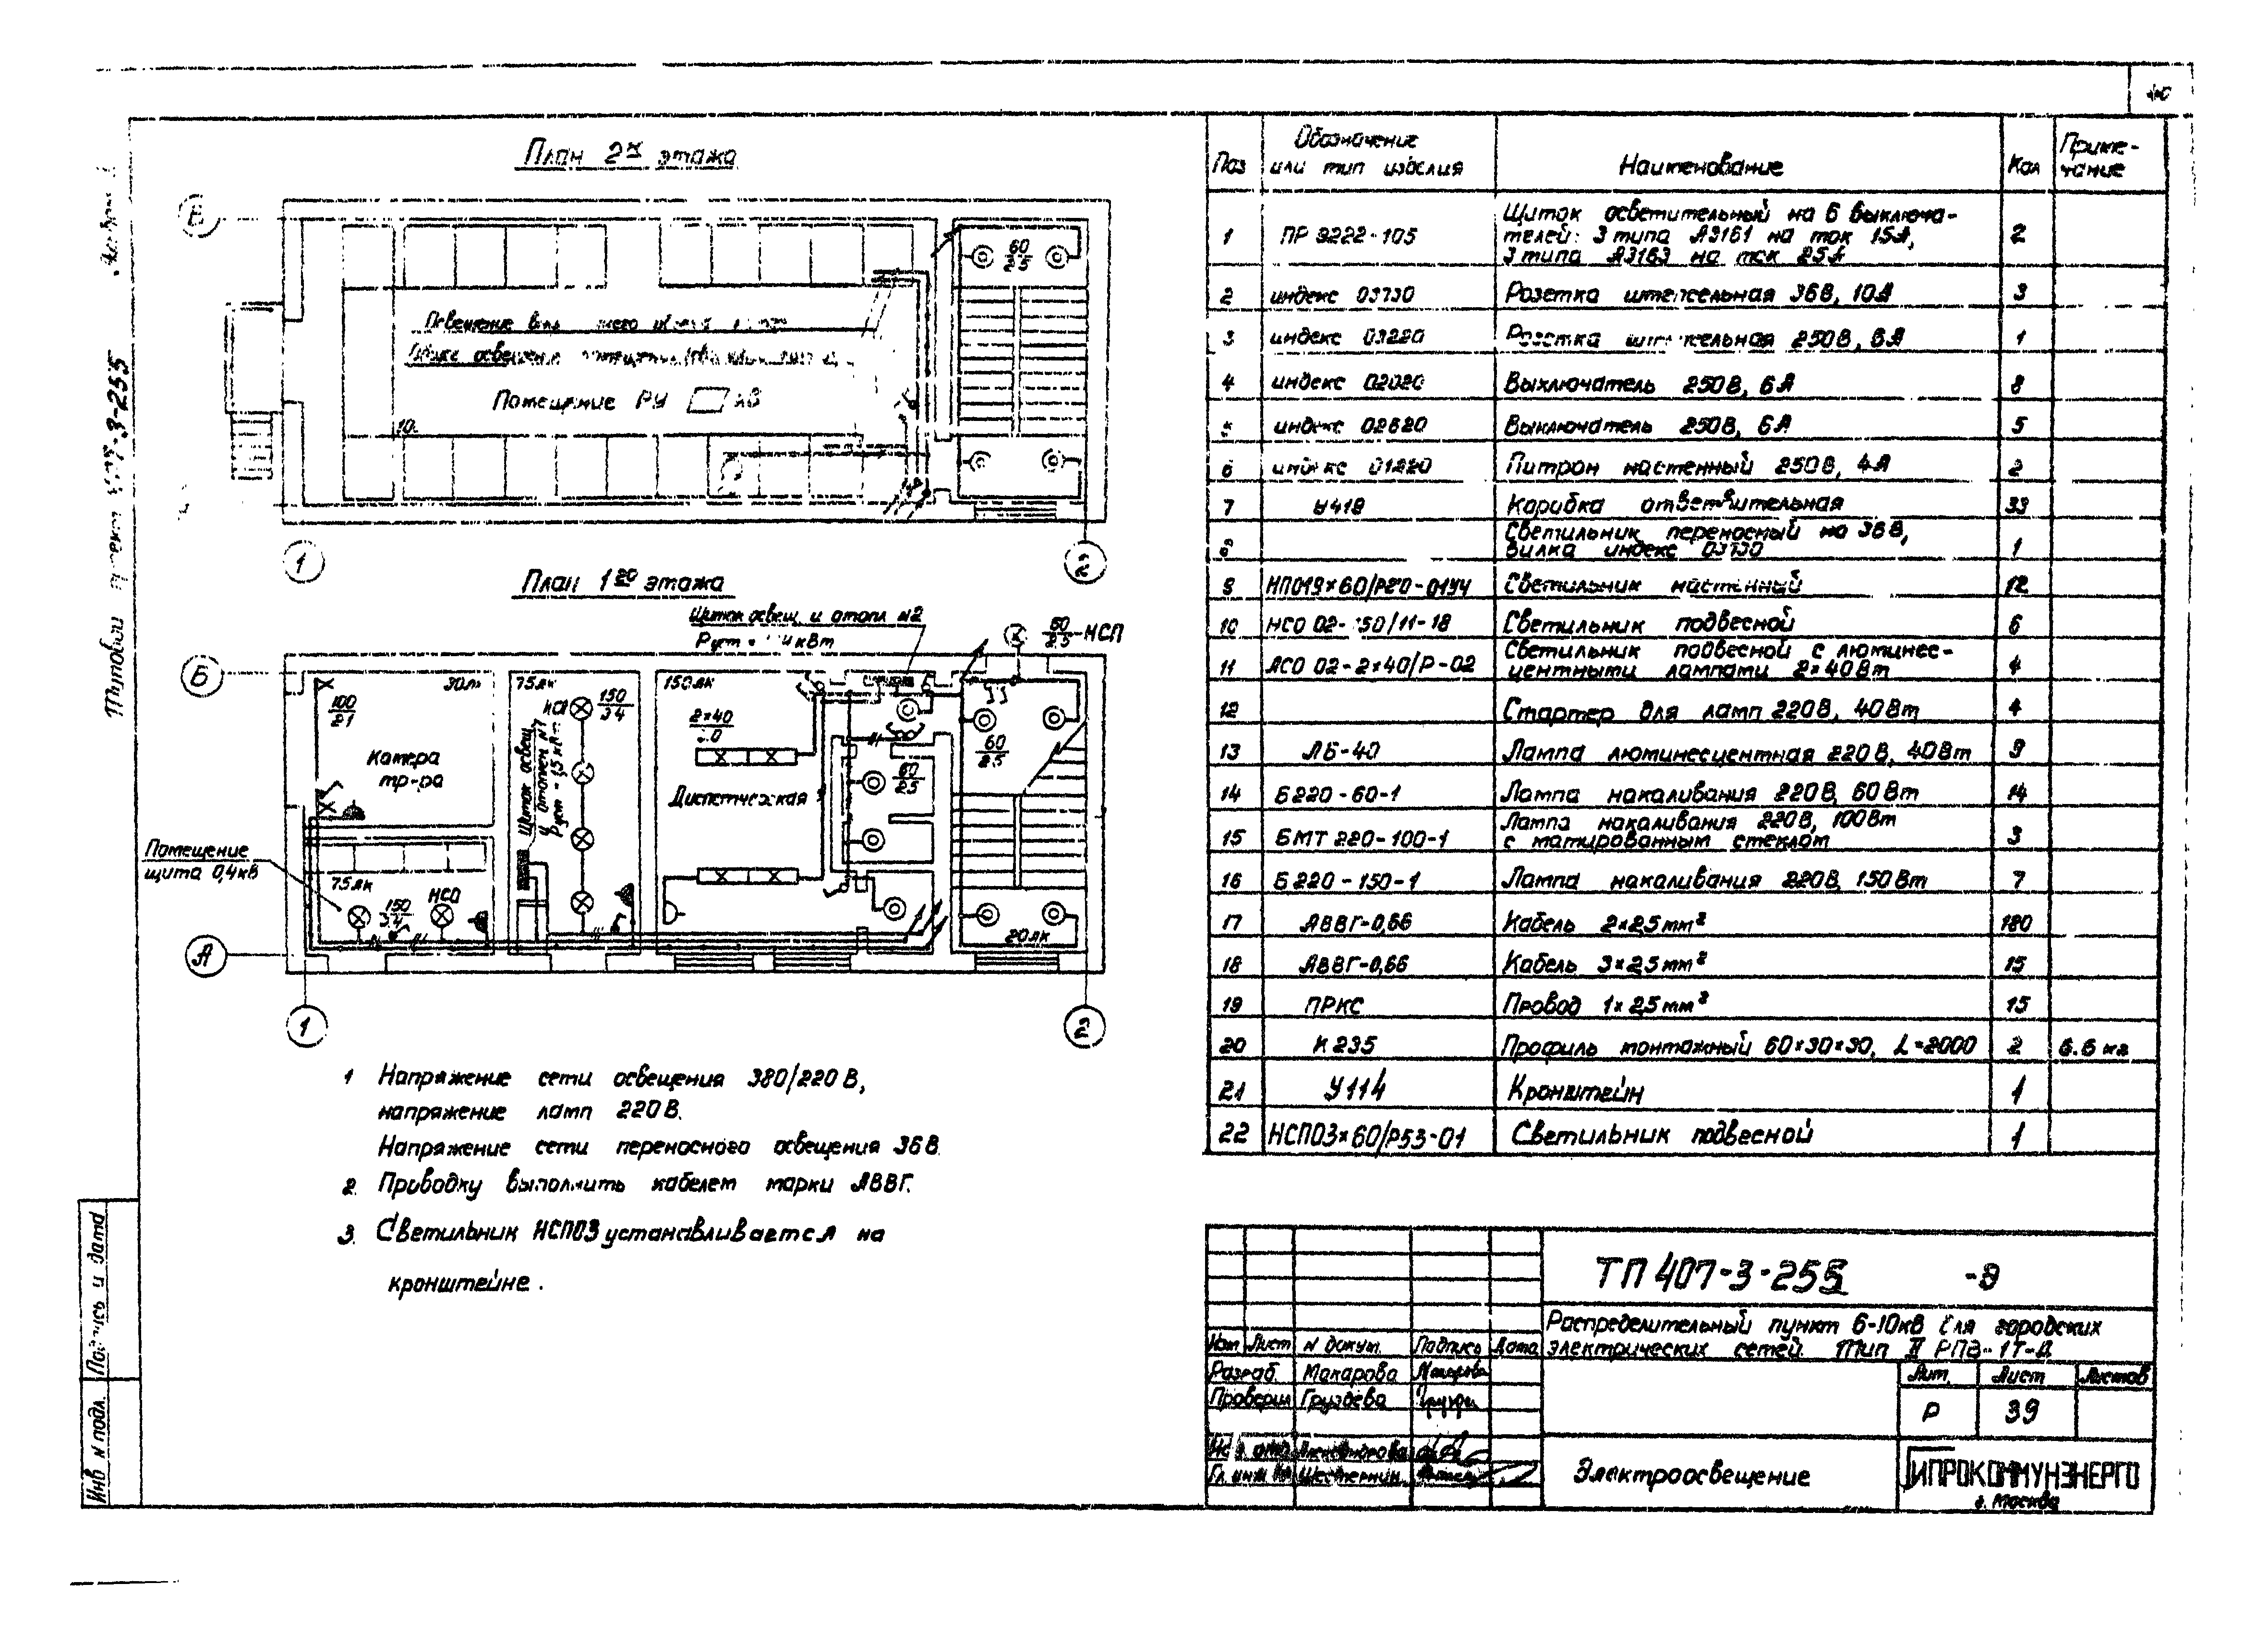 40
План 2го этажа
В
60
25
Помещение РУ кВ
1
2
План 1го этажа
Щиток освещ. и отопл N2
60
25 НСП
Б
30лк
75лк
150лк
100
21
НСО
150
34
2×40
60
25
Камера
тр-ра
Щиток освещ.
и отоплен. N1
Диспетчерская
60
25
Помещение
щита 0,4кВ
75лк
150
3.4
НСО
20лк
А
1
2
1 Напряжение сети освещения 380/220 В,
напряжение ламп 220 В.
Напряжение сети переносного освещения 36 В.
2. Проводку выполнить кабелем марки АВВГ.
3. Светильник НСП03 устанавливается на
кронштейне.
Поз Обозначение или тип изделия Наименование Кол Приме-чание
1 ПР 9222-105 Щиток осветительный на 6 выключа- 2
телей: 3 типа А3161 на ток 15А,
3 типа А3163 на ток 25А
2 индекс 03730 Розетка штепсельная 36В, 10А 3
3 индекс 03220 Розетка штепсельная 250В, 6А 1
4 индекс 02020 Выключатель 250В, 6А 8
5 индекс 02620 Выключатель 250В, 6А 5
6 индекс 01220 Патрон настенный 250В, 4А 2
7 У419 Коробка ответвительная 33
8 Светильник переносный на 36В, 1
вилка индекс 03730
9 НПО19×60/Р20-01У4 Светильник настенный 12
10 НСО 02-150/11-18 Светильник подвесной 6
11 ЛСО 02-2×40/Р-02 Светильник подвесной с люминес- 4
центными лампами 2×40Вт
12 Стартер для ламп 220В, 40Вт 4
13 ЛБ-40 Лампа люминесцентная 220В, 40Вт 9
14 Б220-60-1 Лампа накаливания 220В, 60Вт 14
15 БМТ 220-100-1 Лампа накаливания 220В, 100Вт 3
с матированным стеклом
16 Б220-150-1 Лампа накаливания 220В, 150Вт 7
17 АВВГ-0,66 Кабель 2×2,5мм² 180
18 АВВГ-0,66 Кабель 3×2,5мм² 15
19 ПРКС Провод 1×2,5мм² 15
20 К235 Профиль монтажный 60×30×30, L=2000 2 6.6 кг
21 У114 Кронштейн 1
22 НСП03×60/Р53-01 Светильник подвесной 1
ТП 407-3-255 -Э
Распределительный пункт 6-10кВ для городских
электрических сетей. Тип II РПВ-1Т-Д
Изм Лист N докум. Подпись Дата
Разраб. Макарова
Проверил Груздева
Шестернин
Лит. Лист Листов
Р 39
Электроосвещение
ГИПРОКОММУНЭНЕРГО
г. Москва
Типовой проект 407-3-255
Подпись и дата
Инв N подл.